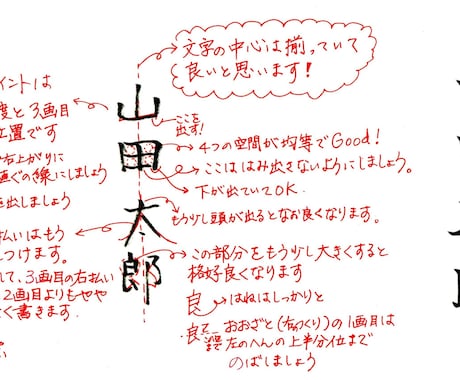 文字の中心は揃っていて
良いと思います!
イントは
度と3画目
位置です
右上がりに
直ぐの線にしましょう
出しましょう
払いはもう
つけます。
して、3画目の右払い
2画目よりもやや
書きます.
山田太郎
ここを
出す!
4つの空間が均等でGood!
ここははみ出さないようにしましょう。
下が出ていてOK.
もう少し頭が出るとなお良くなります。
この部分をもう少し大きくすると
格好良くなります
はねはしっかりと
おおざと(右つくり)の1画目は
左のへんの上半分位まで
のばしましょう